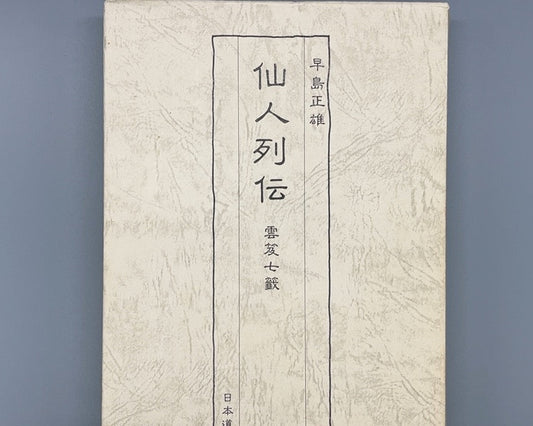 早島正雄
仙人列伝
雲笈七籤
日本道